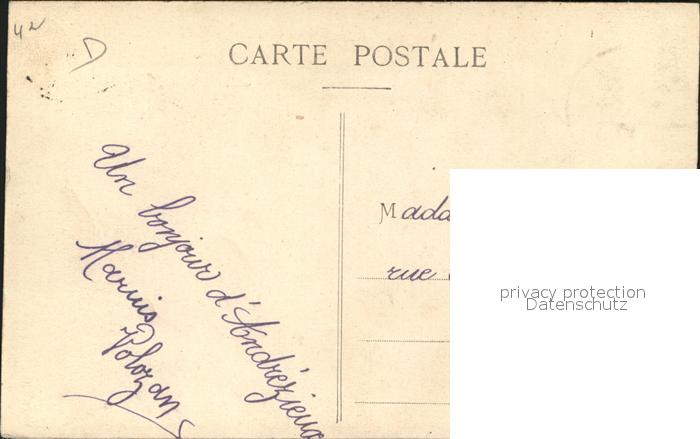 42
CARTE POSTALE
Un bonjour d'Andrézieux
Marius
M
rue
privacy protection
Datenschutz